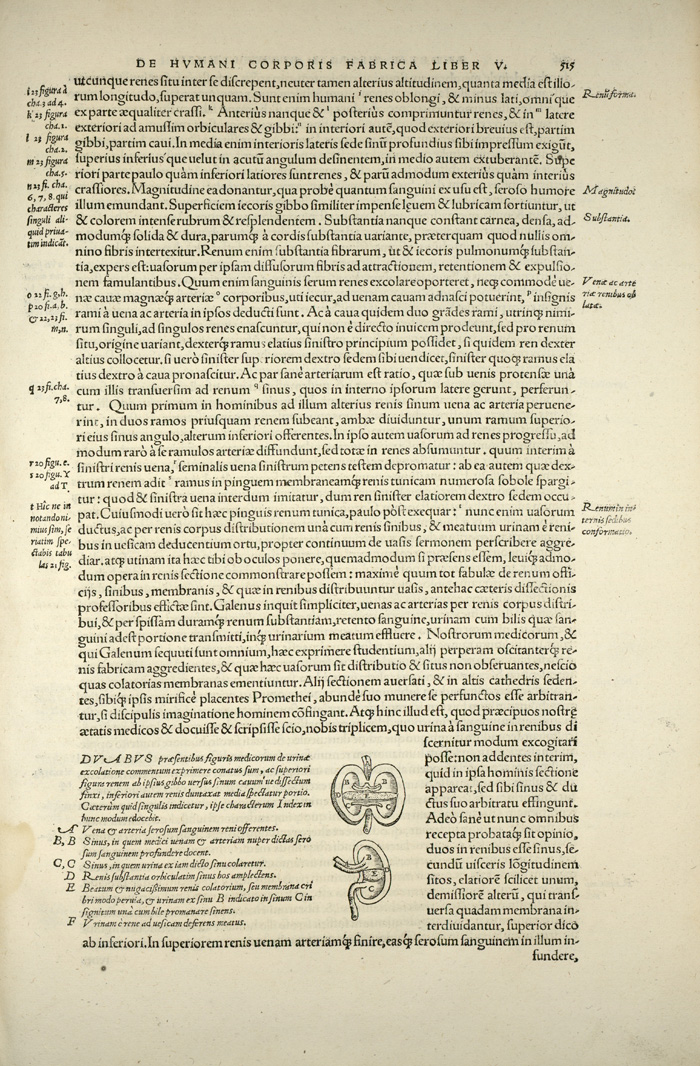 DE HVMANI CORPORIS FABRICA LIBER V. 515
utcunque renes situ inter se discrepent, neuter tamen alterius altitudinem, quanta media est illo-
rum longitudo, superat unquam. Sunt enim humani ˡ renes oblongi, & minus lati, omniq́ue
ex parte æqualiter crassi. ᵏ Anterius nanque & ˡ posterius comprimuntur renes, & in ᵐ latere
exteriori ad amussim orbiculares & gibbi: ⁿ in interiori autē, quod exteriori breuius est, partim
gibbi, partim caui. In media enim interioris lateris sede sinū profundius sibi impressum exigūt,
superius inferius'que uelut in acutū angulum desinentem, in medio autem exuberantē. Supe
riori parte paulo quàm inferiori latiores sunt renes, & parū admodum exterius quàm interius
crassiores. Magnitudine ea donantur, qua probè quantum sanguini ex usu est, seroso humore
illum emundant. Superficiem iecoris gibbo similiter impensè leuem & lubricam sortiuntur, ut
& colorem intense rubrum & resplendentem. Substantia nanque constant carnea, densa, ad-
modumq́ solida & dura, parumq́ à cordis substantia uariante, præterquam quod nullis om-
nino fibris intertexitur. Renum enim substantia fibrarum, ut & iecoris pulmonumq́ substan-
tia, expers est: uasorum per ipsam diffusorum fibris ad attractionem, retentionem & expulsio-
nem famulantibus. Quum enim sanguinis serum renes excolare oporteret, neq́ commodè ue-
næ cauæ magnæq́ arteriæ ᵒ corporibus, uti iecur, ad uenam cauam adnasci potuerint, ᵖ insignes
rami à uena ac arteria in ipsos deducti sunt. Ac à caua quidem duo grādes rami, utrinq́ nimi-
rum singuli, ad singulos renes enascuntur, qui non è directo inuicem prodeunt, sed pro renum
situ, origine uariant, dexterq́ ramus elatius sinistro principium possidet, si quidem ren dexter
altius collocetur. si uerò sinister superiorem dextro sedem sibi uendicet, sinister quoq́ ramus ela
tius dextro à caua pronascitur. Ac par sanè arteriarum est ratio, quæ sub uenis protensæ unà
cum illis transuersim ad renum ᑫ sinus, quos in interno ipsorum latere gerunt, perferun-
tur. Quum primum in hominibus ad illum alterius renis sinum uena ac arteria peruene-
rint, in duos ramos priusquam renem subeant, ambæ diuiduntur, unum ramum superio-
ri eius sinus angulo, alterum inferiori offerentes. In ipso autem uasorum ad renes progressu, ad
modum rarò à se ramulos arteriæ diffundunt, sed totæ in renes absumuntur. quum interim à
sinistri renis uena, ʳ seminalis uena sinistrum petens testem depromatur: ab ea autem quæ dex-
trum renem adit ˢ ramus in pinguem membraneamq́ renis tunicam numerosa sobole spargi-
tur: quod & sinistra uena interdum imitatur, dum ren sinister elatiorem dextro sedem occu-
pat. Cuiusmodi uerò sit hæc pinguis renum tunica, paulo pòst exequar: ᵗ nunc enim uasorum
ductus, ac per renis corpus distributionem unà cum renis sinibus, & meatuum urinam è reni-
bus in uesicam deducentium ortu, propter continuum de uasis sermonem perscribere aggre-
diar. atq́ utinam ita hæc tibi ob oculos ponere, quemadmodum si præsens essem, leuiq́ admo-
dum opera in renis sectione commonstrare possem: maximè quum tot fabulæ de renum offi-
cijs, sinibus, membranis, & quæ in renibus distribuuntur uasis, antehac cæteris dissectionis
professoribus effictæ sint. Galenus inquit simpliciter, uenas ac arterias per renis corpus distri-
bui, & per spissam duramq́ renum substantiam, retento sanguine, urinam cum bilis quæ san-
guini adest portione transmitti, inq́ urinarium meatum effluere. Nostrorum medicorum, &
qui Galenum sequuti sunt omnium, hæc exprimere studentium, alij perperam oscitanterq́ re-
nis fabricam aggredientes, & quæ hæc uasorum sit distributio & situs non obseruantes, nescio
quas colatorias membranas ementiuntur. Alij sectionem auersati, & in altis cathedris seden-
tes, sibiq́ ipsis mirificè placentes Promethei, abundè suo munere se perfunctos esse arbitran-
tur, si discipulis imaginatione hominem cōfingant. Atq́ hinc illud est, quod præcipuos nostræ
ætatis medicos & docuisse & scripsisse scio, nobis triplicem, quo urina à sanguine in renibus di
scernitur modum excogitari
posse: non addentes interim,
quid in ipsa hominis sectione
appareat, sed sibi sinus & du
ctus suo arbitratu effingunt.
Adeò sanè ut nunc omnibus
recepta probataq́ sit opinio,
duos in renibus esse sinus, se-
cundū uisceris lōgitudinem
sitos, elatiorē scilicet unum,
demissiorē alterū, qui trans-
uersa quadam membrana in-
terdiuidantur, superior dico
ab inferiori. In superiorem renis uenam arteriamq́ finire, easq́ serosum sanguinem in illum in-
fundere,
DVABVS præsentibus figuris medicorum de urinæ
excolatione commentum exprimere conatus sum, ac superiori
figura renem ab ipsius gibbo uersus sinum cauum'ue dissectum
finxi, inferiori autem renis duntaxat media spectatur portio.
Cæterùm quid singulis indicetur, ipse characterum Index in
hunc modum edocebit.
A Vena & arteria serosum sanguinem reni offerentes.
B, B Sinus, in quem medici uenam & arteriam nuper dictas sero
sum sanguinem profundere docent.
C, C Sinus, in quem urina ex iam dicto sinu colaretur.
D Renis substantia orbiculatim sinus hos amplectens.
E Beatum & nugacissimum renis colatorium, seu membrana cri
bri modo peruia, & urinam ex sinu B indicato in sinum C in
signitum unà cum bile promanare sinens.
F Vrinam è rene ad uesicam deferens meatus.
i 23 figura à
cha. 3 ad 4.
k 23 figura
cha. 1.
l 23 figura
cha. 2.
m 23 figura
cha. 5.
n 23 fi. cha.
6, 7, 8. qui
characteres
singuli ali-
quid priua-
tim indicāt.
o 22 fi. g, h.
p 20 fi. a, b.
& 22, 23 fi.
m, n.
q 23 fi. cha.
7, 8.
r 20 figu. e.
s 20 figu. Y
ad T
t Hic ne in
notandoni-
mius sim, se
riatim spe-
ctabis tabu
las 21 fig.
Renū forma.
Magnitudo.
Substantia.
Venæ ac arte
riæ renibus ob
latæ.
Renum in in-
ternis sedibus
conformatio.
B B
D
B
E
C